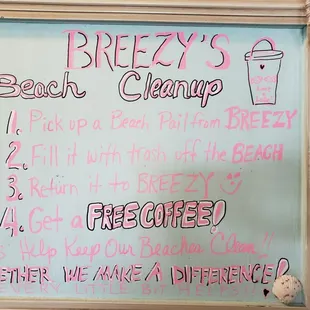 BREEZY'S
Beach Cleanup
1. Pick up a Beach Pail from BREEZY
2. Fill it with trash off the BEACH
3. Return it to BREEZY
4. Get a FREE COFFEE!
Help Keep Our Beaches Clean!!
ETHER WE MAKE A DIFFERENCE!
EVERY LITTLE BIT HELPS